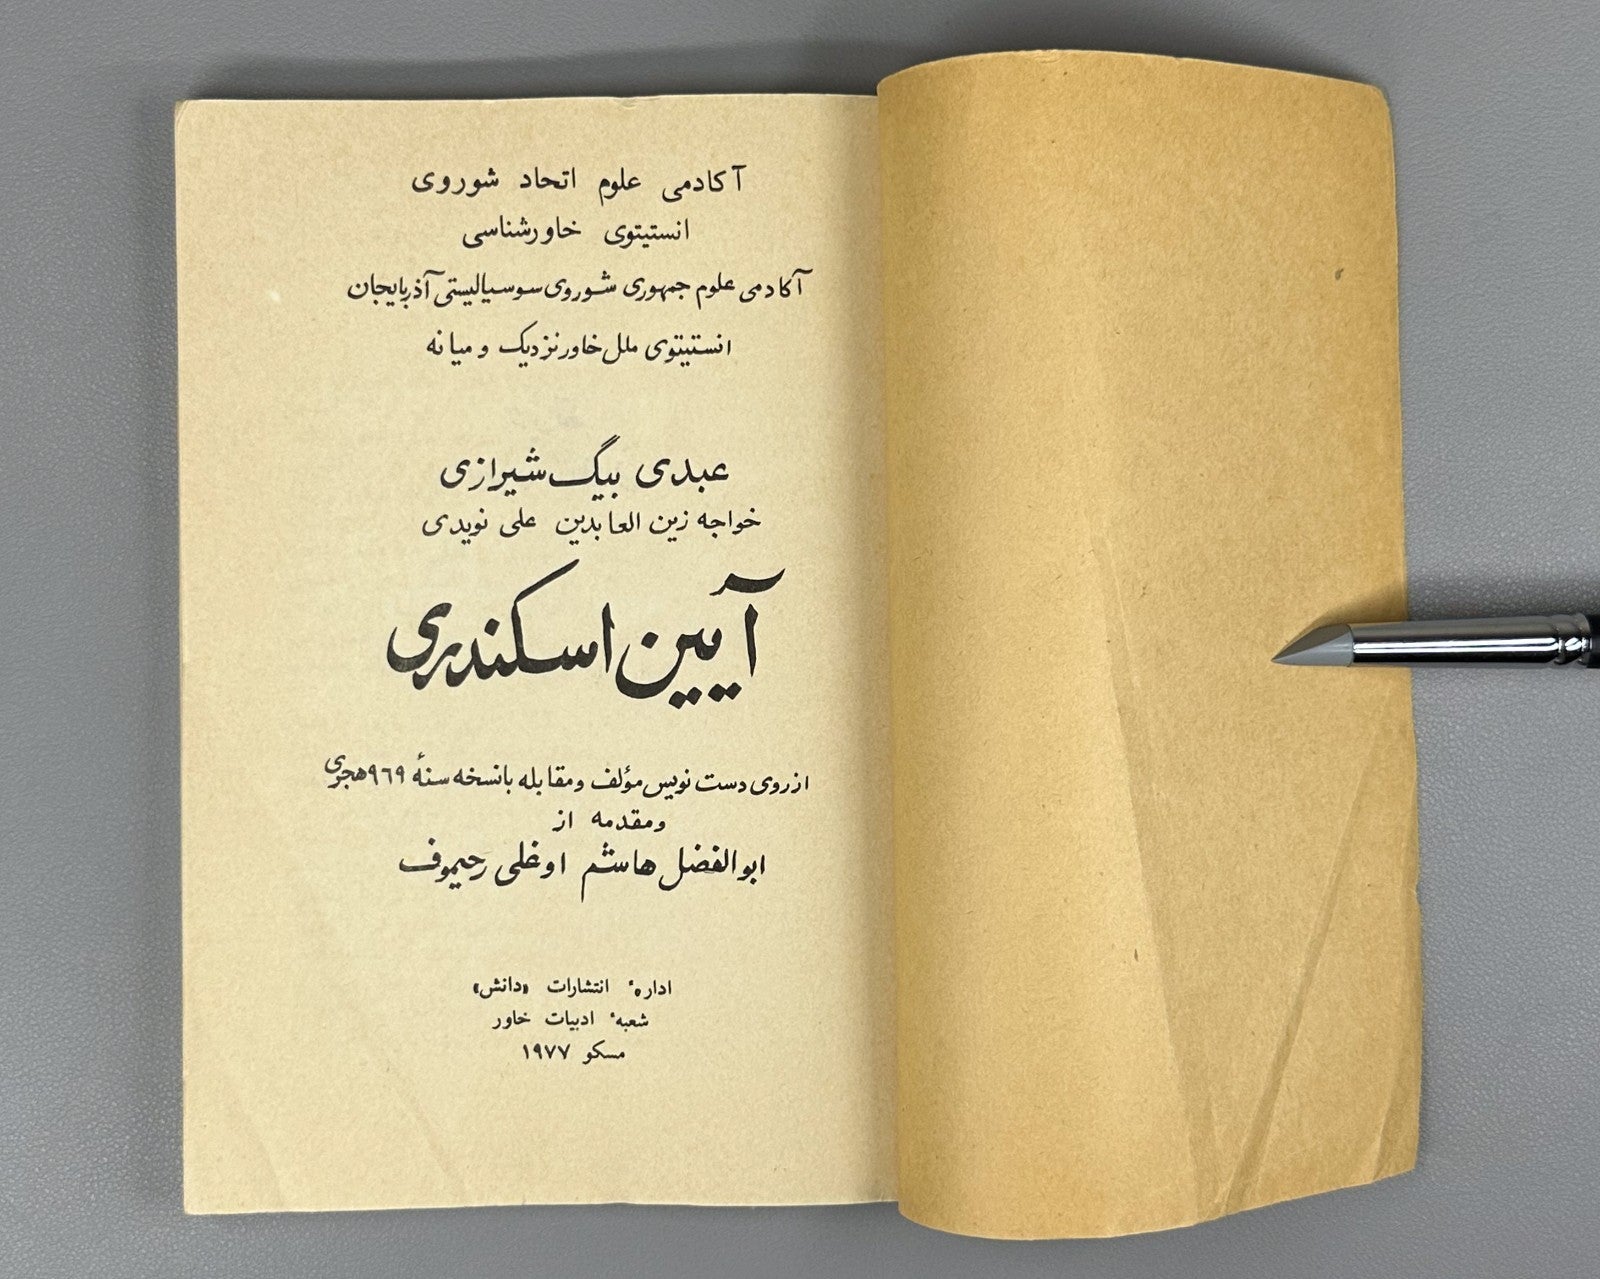 آکادمی علوم اتحاد شوروی
انستیتوی خاورشناسی
آکادمی علوم جمهوری شوروی سوسیالیستی آذربایجان
انستیتوی ملل خاور نزدیک و میانه
عبدی بیگ شیرازی
خواجه زین العابدین علی نویدی
آیین اسکندری
از روی دست نویس مؤلف و مقابله با نسخه سنهٔ ۹٦۹ هجری
و مقدمه از
ابوالفضل هاشم اوغلی رحیموف
ادارهٔ انتشارات «دانش»
شعبهٔ ادبیات خاور
مسکو ۱۹۷۷